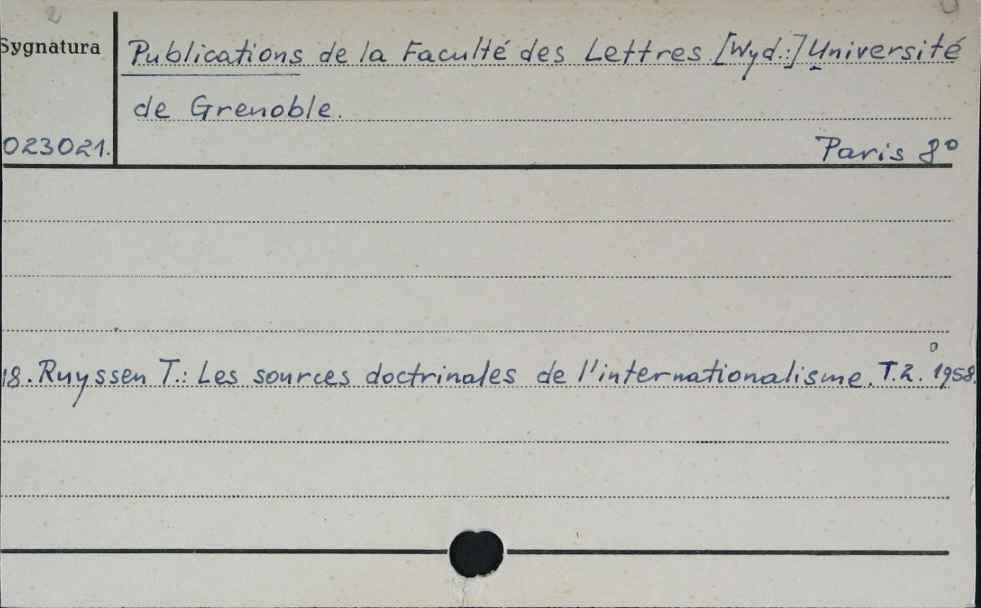 Sygnatura
Publications de la Faculté des Lettres. [Wyd.:] Université
de Grenoble.
023021.
Paris 8°
18. Ruyssen T.: Les sources doctrinales de l'internationalisme. T.2. 1958.